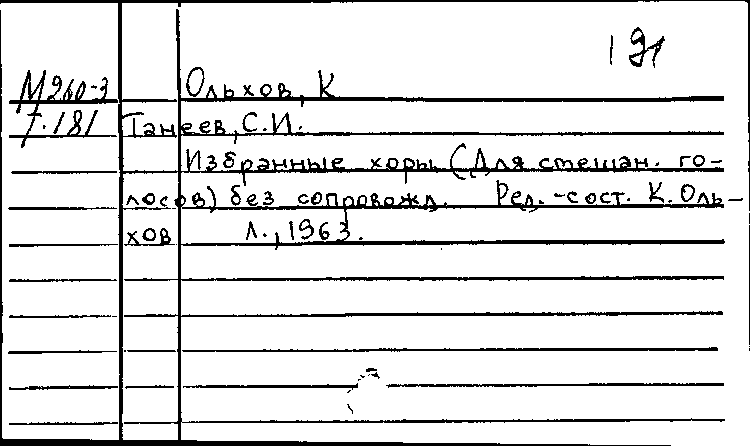 191
М260-3 Ольхов, К
Т.181 Танеев, С.И.
Избранные хоры (Для смешан. го-
лосов) без сопровожд. Ред.-сост. К. Оль-
хов Л., 1963.